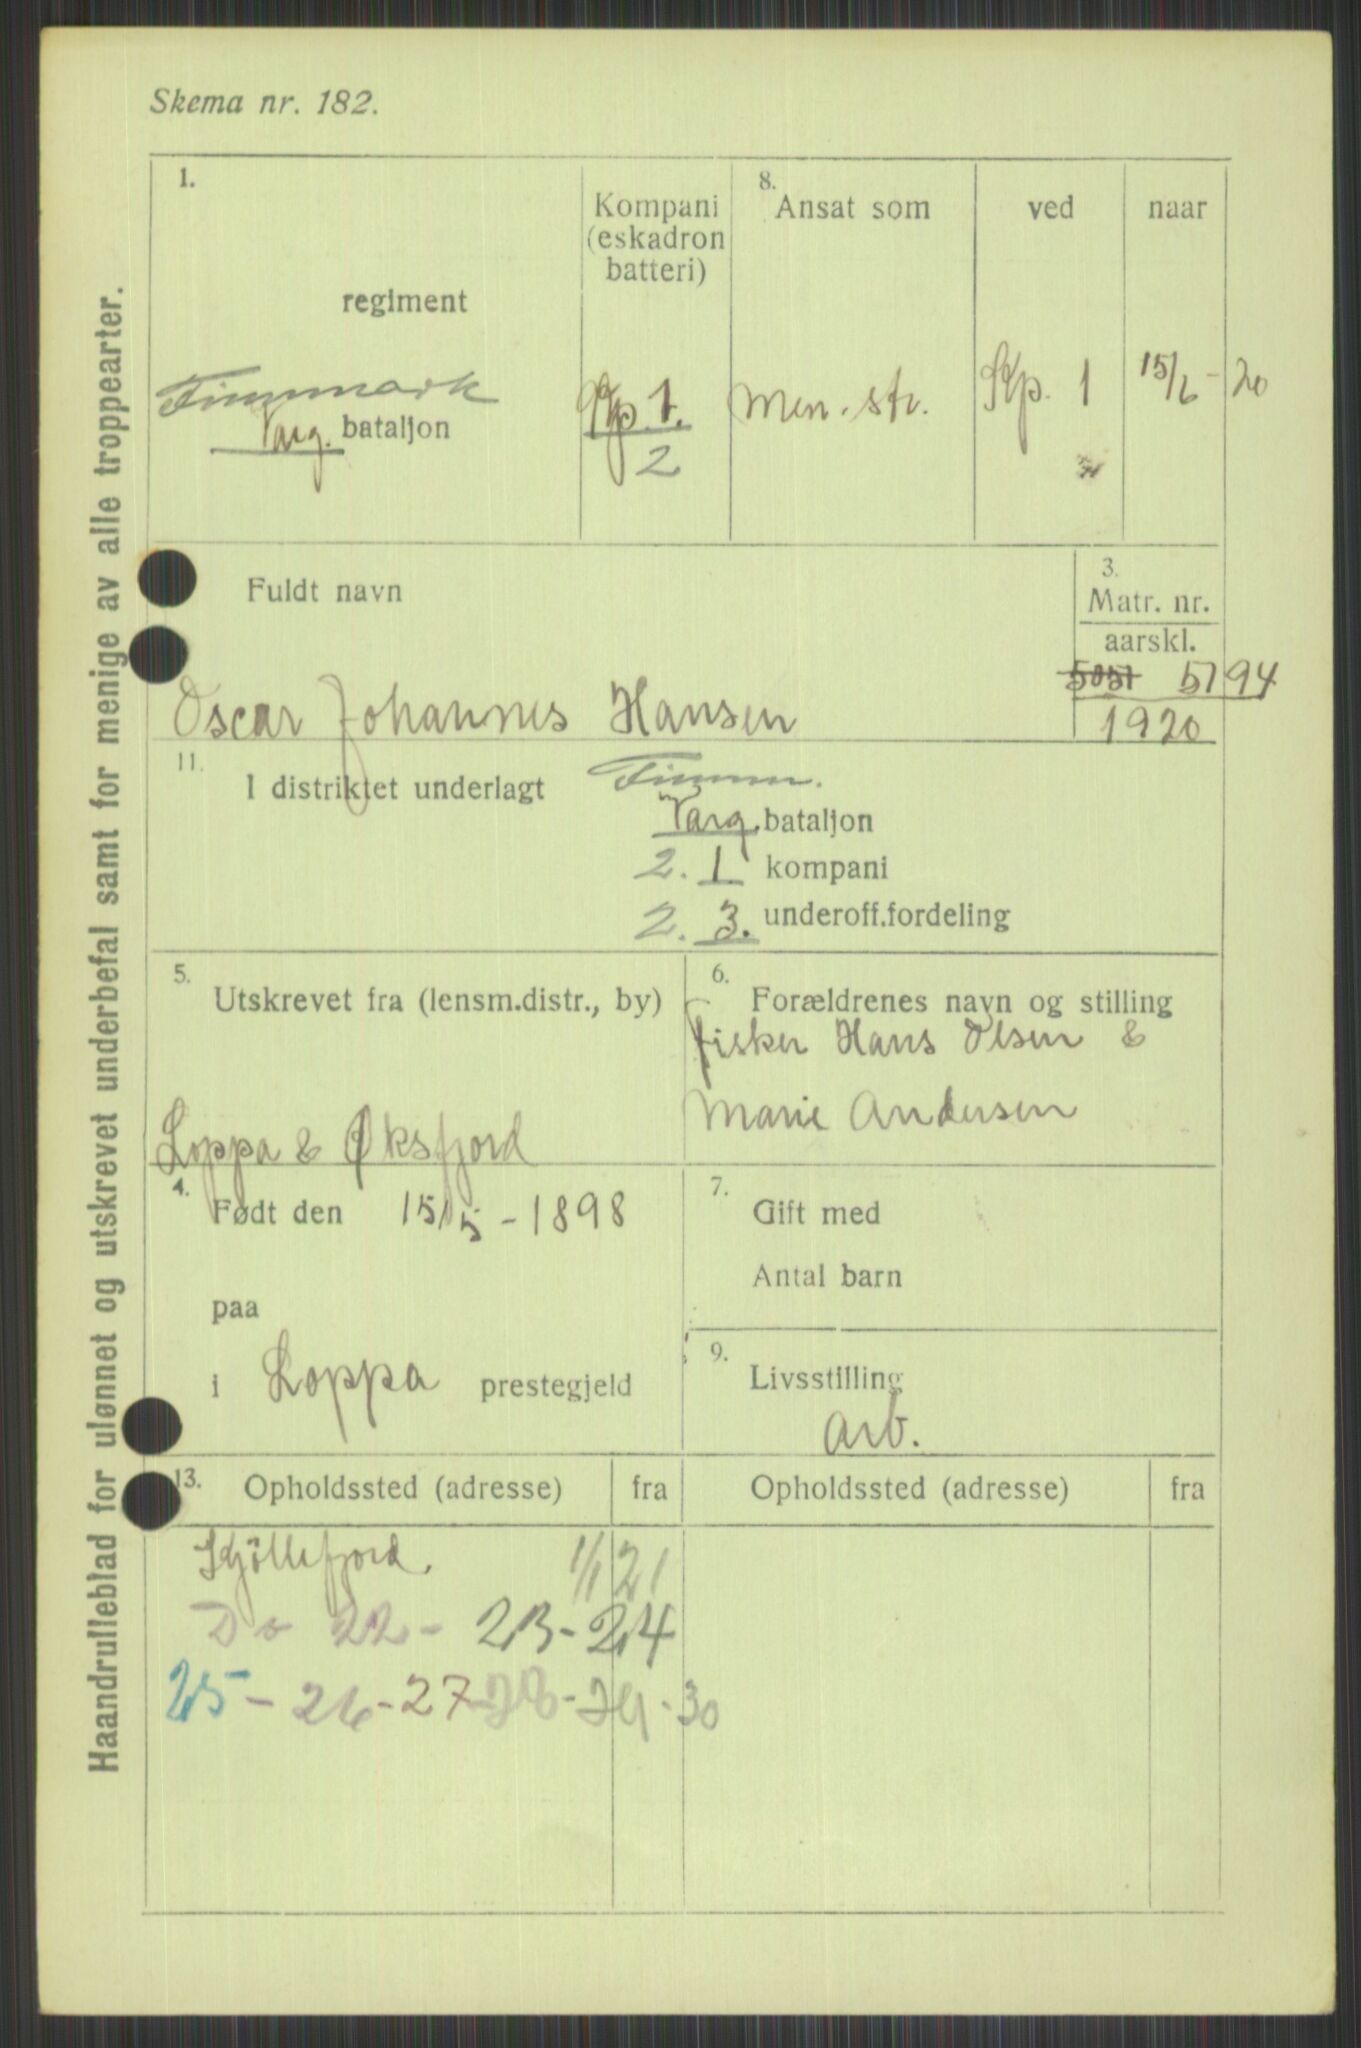 Skema nr. 182.
Haandrulleblad for ulønnet og utskrevet underbefal samt for menige av alle troppearter.
1.
regiment
Finnmark
Varg. bataljon
Kompani
(eskadron
batteri)
Kp. 1.
2
8.
Ansat som
Men. str.
ved
Kp. 1
naar
15/6 - 20
Fuldt navn
Oscar Johannes Hansen
3.
Matr. nr.
aarskl.
5051 5194
1920
11.
I distriktet underlagt Finnm.
Varg. bataljon
2. 1 kompani
2. 3. underoff.fordeling
5.
Utskrevet fra (lensm.distr., by)
Loppa & Øksfjord
6.
Forældrenes navn og stilling
fisker Hans Olsen &
Marie Andersen
4.
Født den 15/5 - 1898
paa
i Loppa prestegjeld
7.
Gift med
Antal barn
9.
Livsstilling
Arb.
13.
Opholdssted (adresse) fra Opholdssted (adresse) fra
Kjöllefjord. 1/1 21
Do 22 - 23 - 24
25 - 26 - 27 - 28 - 29 - 30